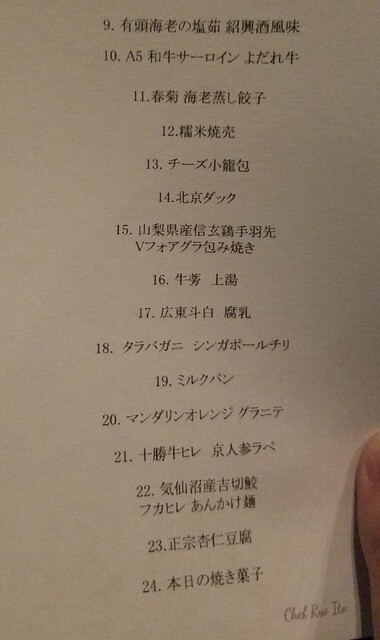 9. 有頭海老の塩茹 紹興酒風味
10. A5 和牛サーロイン よだれ牛
11.春菊 海老蒸し餃子
12.糯米焼売
13. チーズ小籠包
14.北京ダック
15. 山梨県産信玄鶏手羽先
Vフォアグラ包み焼き
16. 牛蒡 上湯
17. 広東斗白 腐乳
18. タラバガニ シンガポールチリ
19. ミルクパン
20. マンダリンオレンジ グラニテ
21. 十勝牛ヒレ 京人参ラペ
22. 気仙沼産吉切鮫
フカヒレ あんかけ麺
23.正宗杏仁豆腐
24. 本日の焼き菓子
Chef Ryo Ito